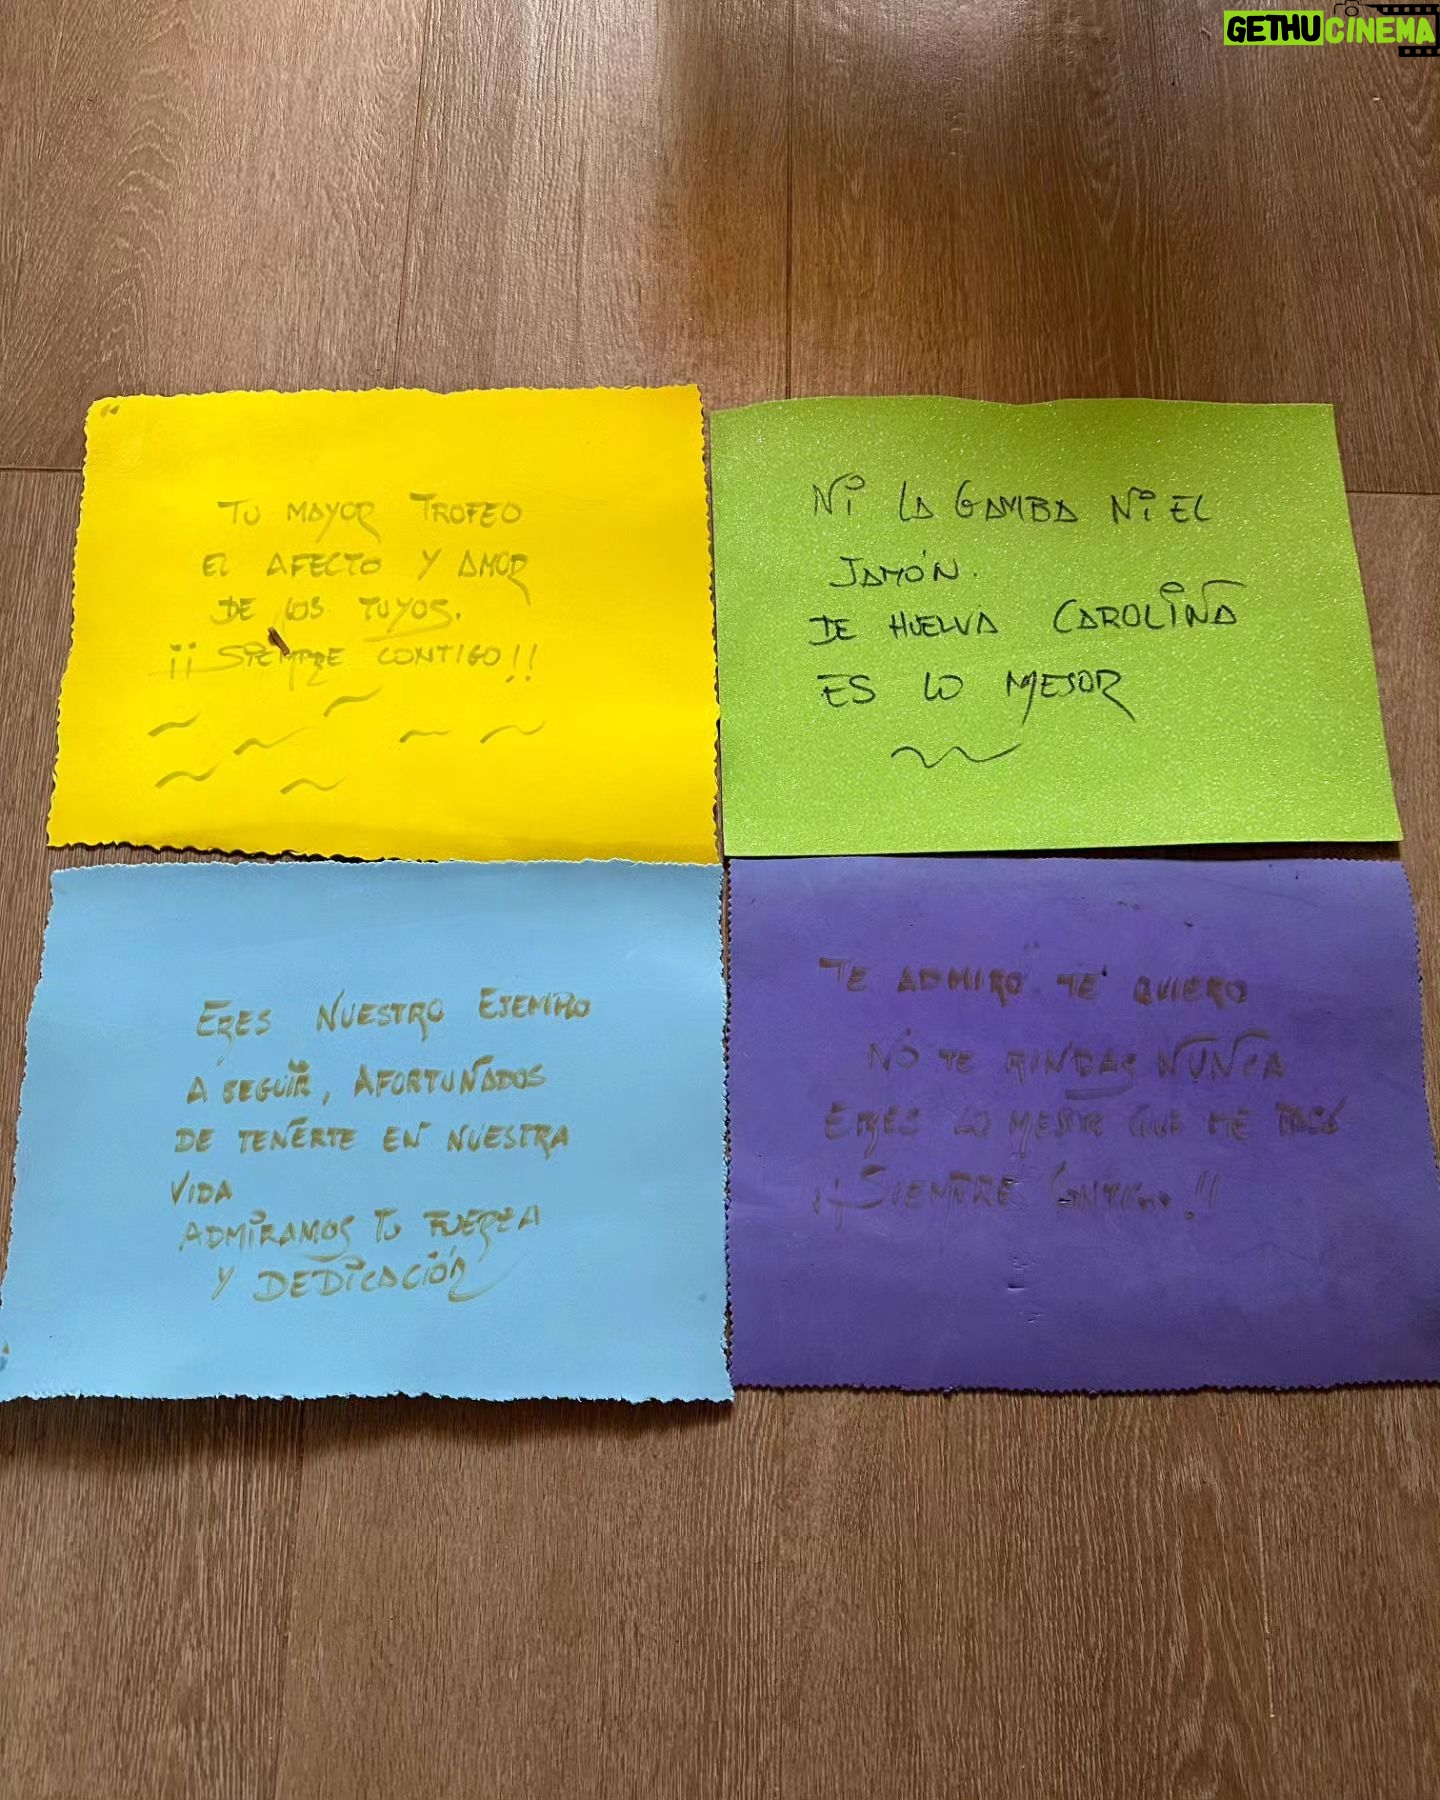 GETHUCINEMA
TU MAYOR TROFEO
EL AFECTO Y AMOR
DE LOS TUYOS.
¡¡SIEMPRE CONTIGO!!
NI LA GAMBA NI EL
JAMÓN.
DE HUELVA CAROLINA
ES LO MEJOR
ERES NUESTRO EJEMPLO
A SEGUIR, AFORTUNADOS
DE TENERTE EN NUESTRA
VIDA
ADMIRAMOS TU FUERZA
Y DEDICACIÓN
TE ADMIRO TE QUIERO
NO TE RINDAS NUNCA
ERES LO MEJOR QUE ME PASÓ
¡¡SIEMPRE CONTIGO!!